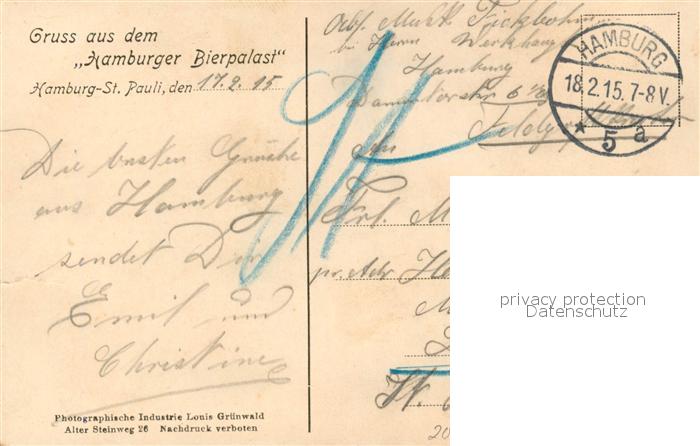 Gruss aus dem
„Hamburger Bierpalast"
Hamburg-St. Pauli, den 17.2.15
Die besten Grüße
aus Hamburg
sendet Dir
Emil und
Christine
Photographische Industrie Louis Grünwald
Alter Steinweg 26 Nachdruck verboten
Abs. Fickbohm
bei Herrn
Hamburg
6
HAMBURG
18.2.15.7-8V.
* 5 a
An
Frl. M
pr. Adr
privacy protection
Datenschutz
20